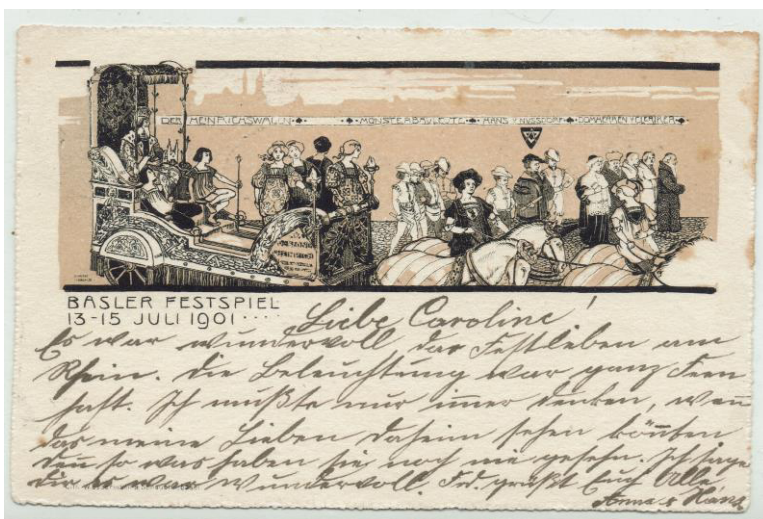 DER HEINRICHSWAGEN MÜNSTERBAULEUTE HANS V NUSSDORF DOMHERREN
BASLER FESTSPIEL
13-15 JULI 1901 ····
Liebe Caroline!
Es war wundervoll das Festleben am
Rhein. die Beleuchtung war ganz feen
haft. Ich mußte nur im̅er denken, wen̅
das meine Lieben daheim sehen kön̅ten
den̅ so was haben sie noch nie gesehn. Ich sage
dir es war wundervoll. Frd. grüßt Euch Alle
Anna & Hans